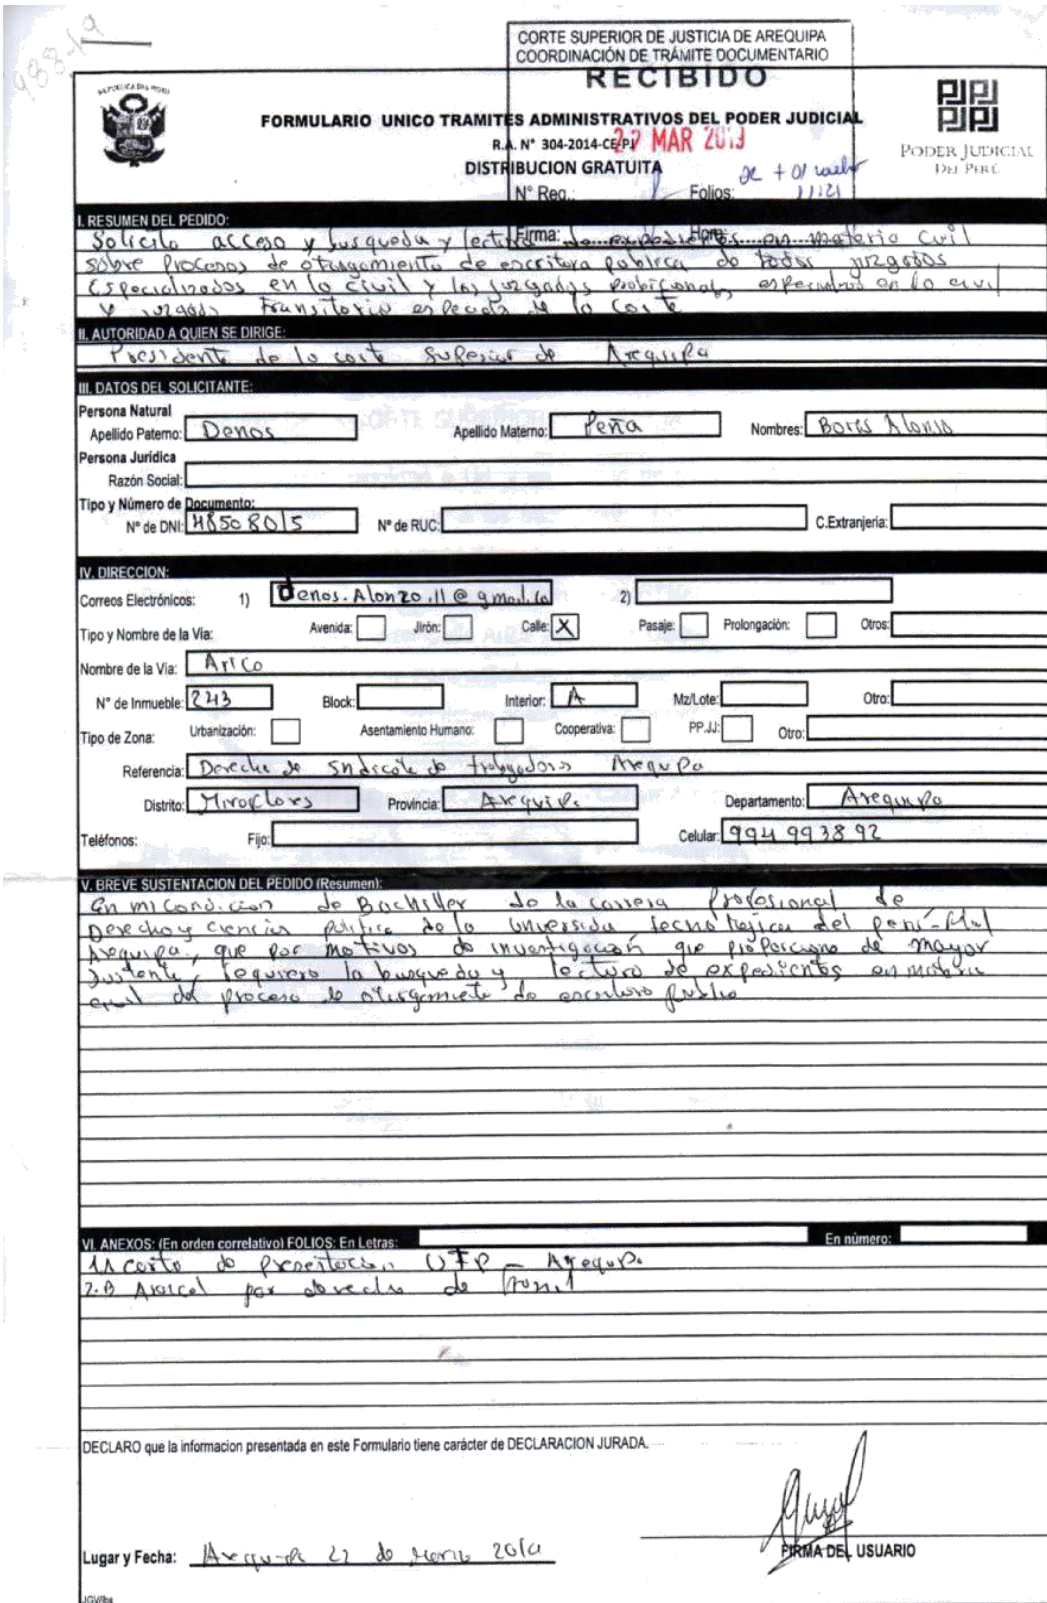 988-19
CORTE SUPERIOR DE JUSTICIA DE AREQUIPA
COORDINACIÓN DE TRÁMITE DOCUMENTARIO
RECIBIDO
REPUBLICA DEL PERU
FORMULARIO UNICO TRAMITES ADMINISTRATIVOS DEL PODER JUDICIAL
R.A. N° 304-2014-CE-PJ
22 MAR 2019
DISTRIBUCION GRATUITA
PODER JUDICIAL
DEL PERÚ
N° Reg.: Folios:
11:21
Firma: Hora:
I. RESUMEN DEL PEDIDO:
Solicito acceso y busqueda y lectura de expedientes en materia civil
sobre Procesos de otorgamiento de escritura publica de todos juzgados
Especializados en lo civil y los juzgados
y juzgado transitorio de la Corte
II. AUTORIDAD A QUIEN SE DIRIGE:
Presidente de la corte Superior de Arequipa
III. DATOS DEL SOLICITANTE:
Persona Natural
Apellido Paterno: Denos Apellido Materno: Peña Nombres: Boris Alonso
Persona Juridica
Razón Social:
Tipo y Número de Documento:
N° de DNI: 48508015 N° de RUC: C.Extranjeria:
IV. DIRECCION:
Correos Electrónicos: 1) Denos.Alonzo.11@gmail.co 2)
Tipo y Nombre de la Via: Avenida: Jirón: Calle: X Pasaje: Prolongación: Otros:
Nombre de la Via: Arico
N° de Inmueble: 243 Block: Interior: A Mz/Lote: Otro:
Tipo de Zona: Urbanización: Asentamiento Humano: Cooperativa: PP.JJ: Otro:
Referencia: Derecha de Sindicato de trabajadores Arequipa
Distrito: Miraflores Provincia: Arequipa Departamento: Arequipa
Teléfonos: Fijo: Celular: 994993892
V. BREVE SUSTENTACION DEL PEDIDO (Resumen):
En mi Condicion de Bachiller de la carrera Profesional de
Derecho y ciencias politica de la universidad tecnologica del perú-filial
Arequipa, que por motivos de investigación que proporcione de mayor
sustento, requiero la busqueda y lectura de expedientes en materia
civil del proceso de otorgamiento de escritura publica
VI. ANEXOS: (En orden correlativo) FOLIOS: En Letras: En número:
1.A carta de Presentacion UTP - Arequipa
2.B Arancel por derecho de
DECLARO que la informacion presentada en este Formulario tiene carácter de DECLARACION JURADA.
Lugar y Fecha: Arequipa 22 de Marzo 2019
FIRMA DEL USUARIO
JGV/lbs